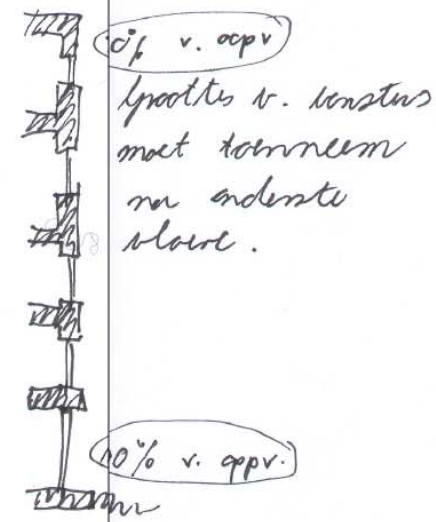 0% v. oppv
Groottes v. vensters
moet toeneem
na onderste
vloere.
10% v. oppv.